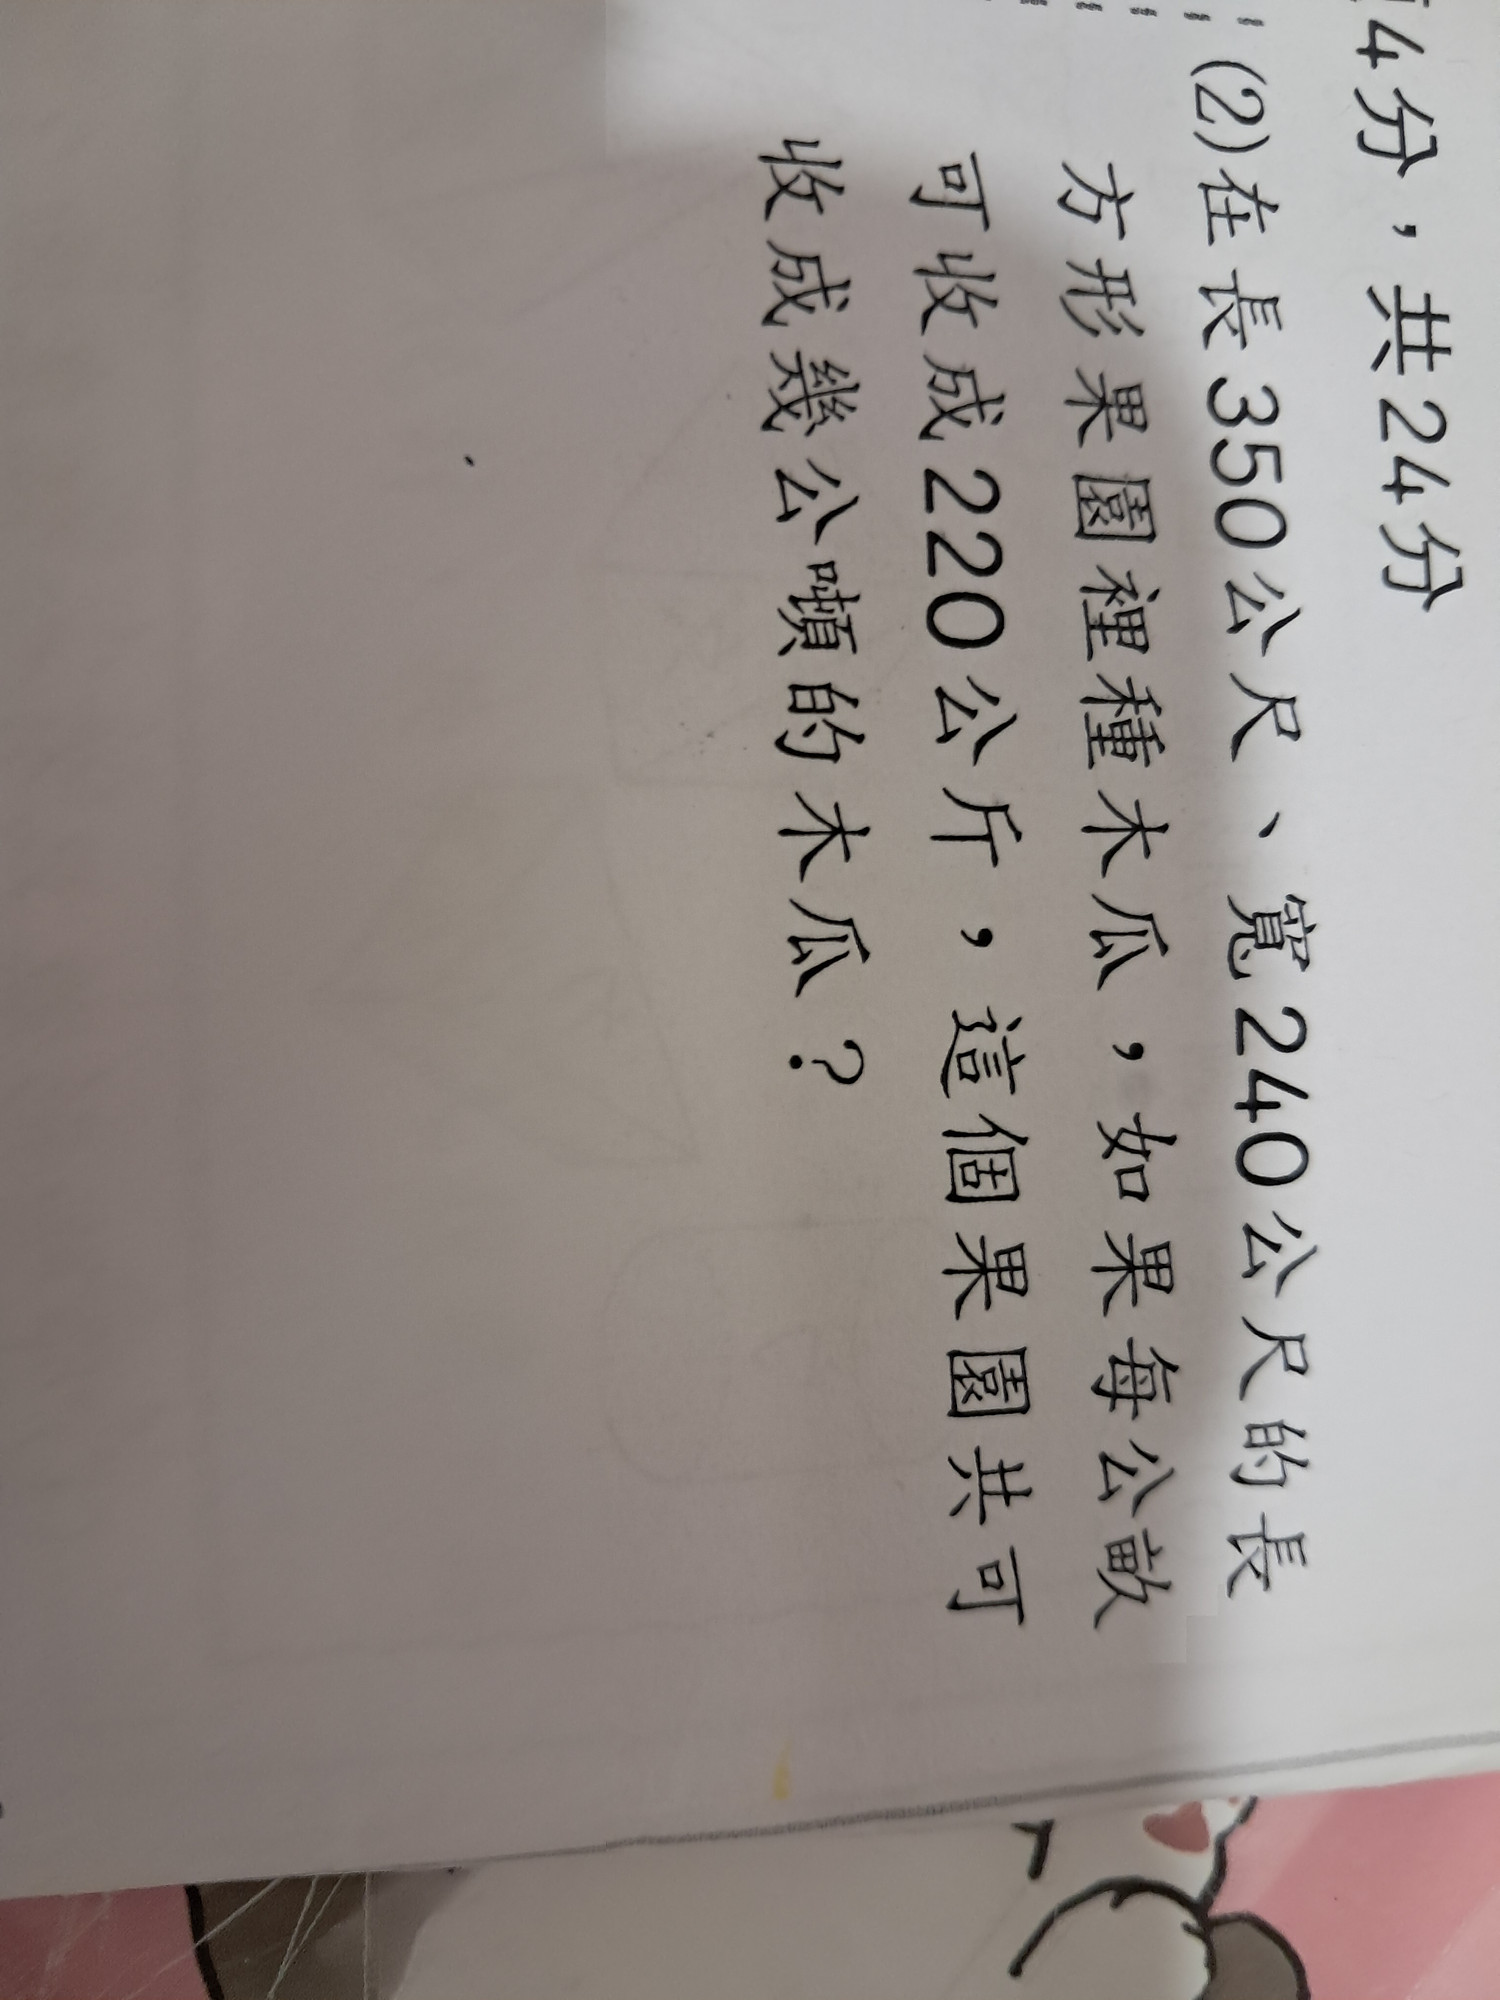 4分，共24分
(2)在長350公尺、寬240公尺的長
方形果園裡種木瓜，如果每公畝
可收成220公斤，這個果園共可
收成幾公噸的木瓜？